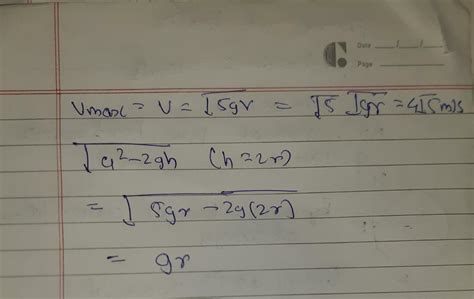 Date __/__/__
Page ____
Vmax = V = √5gr = √5 √gr = 4√5 m/s
√u²-2gh (h = 2r)
= √5gr - 2g(2r)
= gr